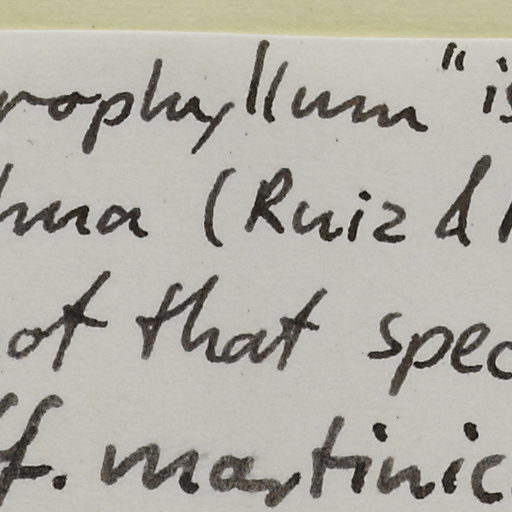 rophyllum" is
(Ruiz &
of that spec
f. martinic